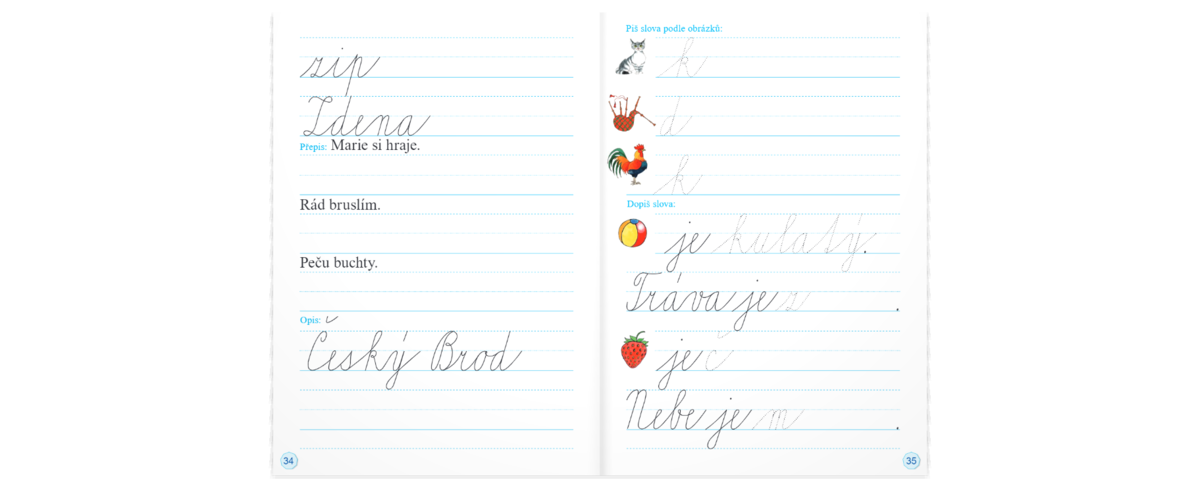 zip
Zdena
Přepis: Marie si hraje.
Rád bruslím.
Peču buchty.
Opis: ˇ
Český Brod
34
Piš slova podle obrázků:
k
d
k
Dopiš slova:
je kulatý.
Tráva je z .
je č
Nebe je m .
35